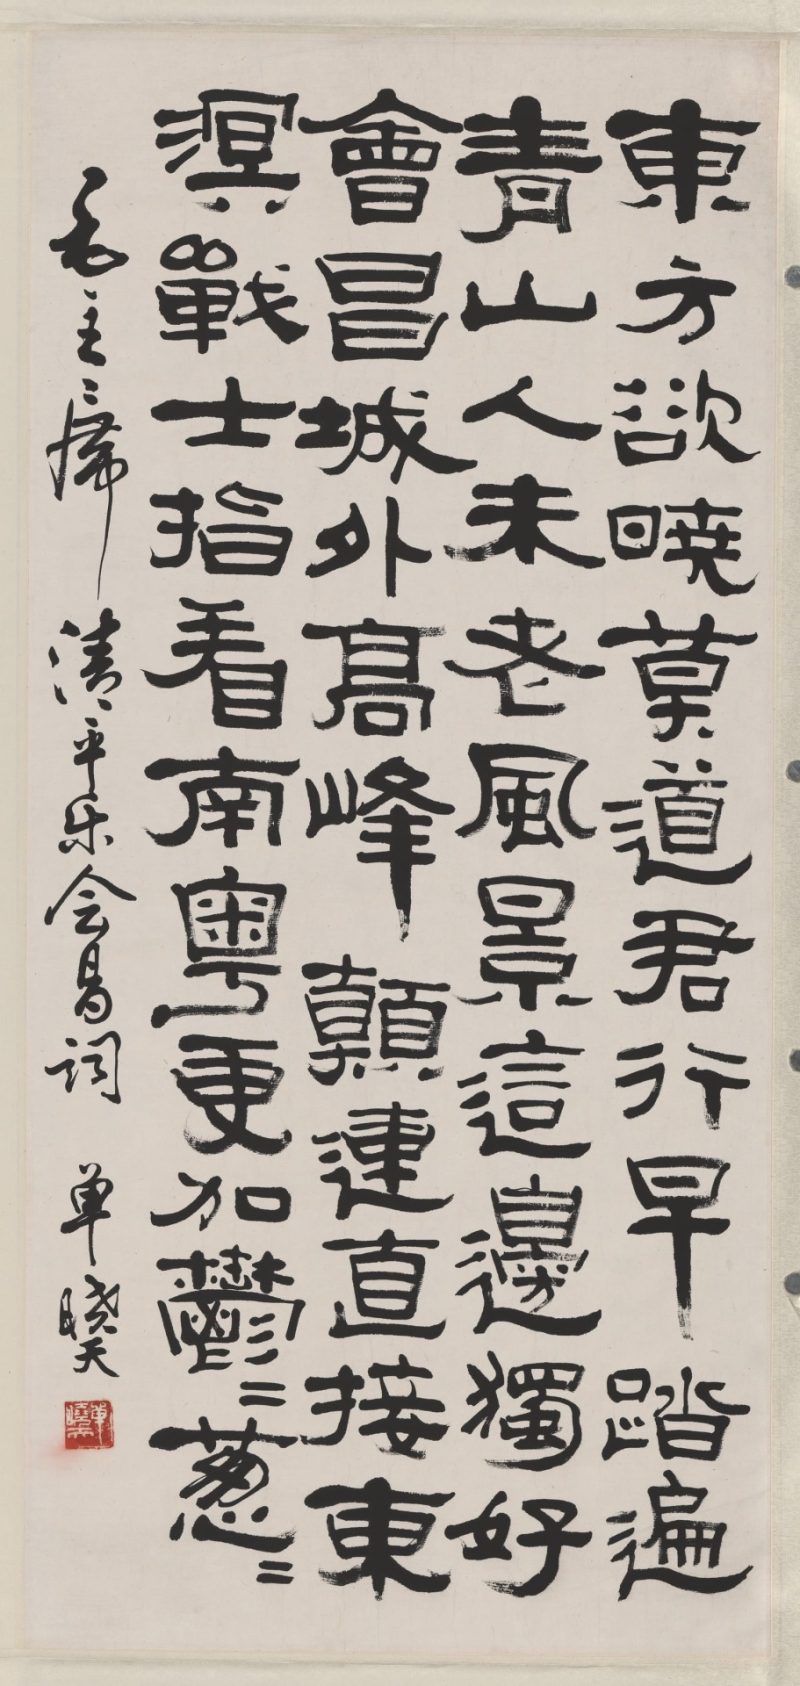 東方欲曉莫道君行早踏遍
青山人未老風景這邊獨好
會昌城外高峰顛連直接東
溟戰士指看南粵更加鬱〻葱〻
毛主席清平乐会昌词 单晓天
單曉天